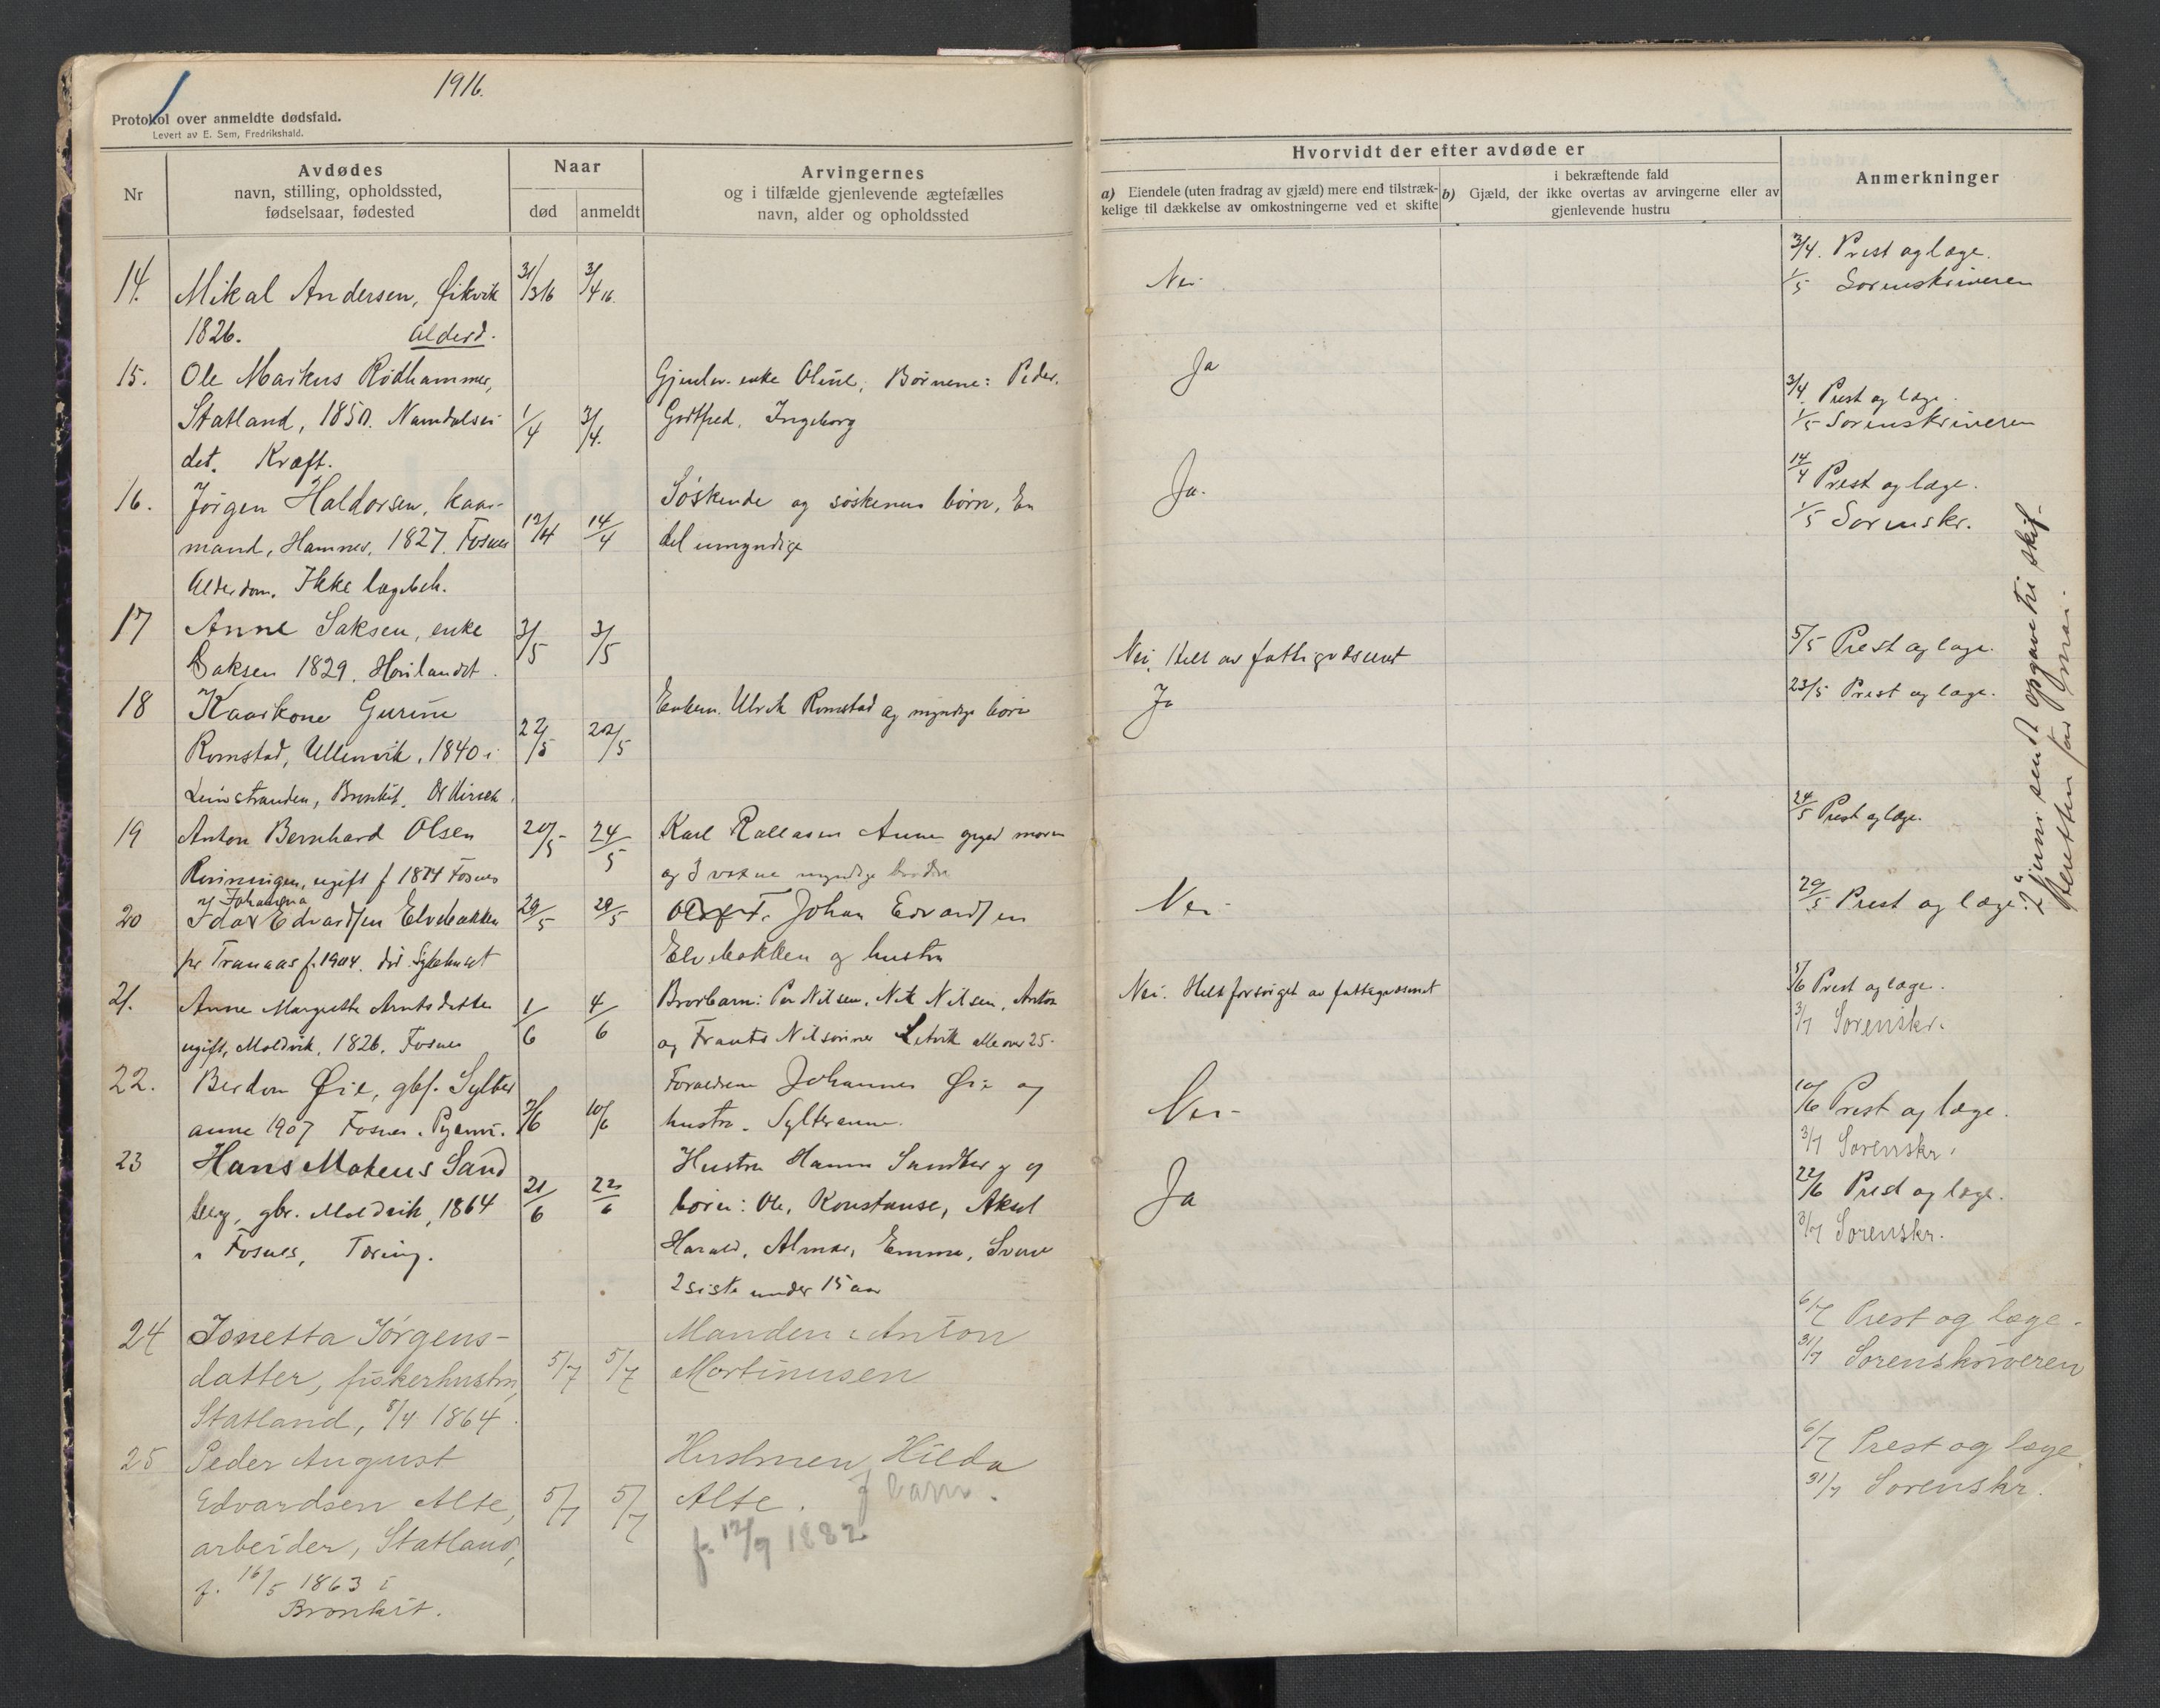 1916.
Protokol over anmeldte dødsfald.
Levert av E. Sem, Fredrikshald.
Nr
Avdødes
navn, stilling, opholdssted,
fødselsaar, fødested
Naar
død
anmeldt
Arvingernes
og i tilfælde gjenlevende ægtefælles
navn, alder og opholdssted
Hvorvidt der efter avdøde er
a) Eiendele (uten fradrag av gjæld) mere end tilstræk-
kelige til dækkelse av omkostningerne ved et skifte
i bekræftende fald
b) Gjæld, der ikke overtas av arvingerne eller av
gjenlevende hustru
Anmerkninger
14. Mikal Andersen, Øikvik 31/3 16 3/4 16. Nei 3/4. Prest og læge.
1826. Alderd. 1/5 Sorenskriveren
15. Ole Markus Rødhammer, Gjenlev. enke Oline, Børnene: Peder. Ja
Statland, 1850. Namdalsei 1/4 3/4. Godtfred, Ingeborg 3/4. Prest og læge.
det. Kræft. 1/5 Sorenskriveren
16. Jørgen Haldorsen, kaar- Søskende og søskenes børn, En Ja. 14/4 Prest og læge.
mand, Hamnes, 1827. Fosnes 12/4 14/4 del umyndige 1/5 Sorenskr.
Alderdom. Ikke lægebeh.
17 Anne Saksen, enke 3/5 3/5
Saksen 1829. Høilandet. Nei. Helt av fattigvæsenet 5/5 Prest og læge.
18 Kaarkone Gurine Enkem. Ulrik Romstad og myndige børn Ja 23/5 Prest og læge.
Romstad, Ullenvik, 1840 i 22/5 22/5
Leinstranden, Bronkit.
19 Anton Bernhard Olsen 20/5 24/5 Karl Anne moren 24/5 Prest og læge.
ugift f 1874 Fosnes og 3 voxne myndige brødre
20 Johanna
Edvardsen Elvebakken 29/5 29/5 Johan Edvardsen Nei 29/5 Prest og læge.
Tranaas f. 1904. Sykehuset Elvebakken og hustru
21. Anne Margrethe Arntsdatter 1/6 4/6 Brorbarn: Per Nilsen, Nils Nilsen, Anton Nei. Helt forsørget av fattigvæsenet 5/6 Prest og læge.
ugift, Moldvik, 1826. Fosnes og Frants alle over 25. 3/7 Sorenskr.
22. Øie, gbf. Sylter Forældrene Johannes Øie og Nei 10/6 Prest og læge.
anne 1907 Fosnes. Pyæmi. 10/6 hustru. Sylteranne. 3/7 Sorenskr.
23 Hans Mateus Sand Hustru Hanna Sandberg og Ja 22/6 Prest og læge.
berg, gbr. Moldvik, 1864 21/6 22/6 børn: Ole, Konstanse, Aksel 3/7 Sorenskr.
i Fosnes, Tæring. Harald, Almar, Emma,
2 siste under 15 aar
24 Jonetta Jørgens- Manden Anton 6/7 Prest og læge.
datter, fiskerhustru, 5/7 5/7 Martinusen 31/7 Sorenskriveren
Statland, 8/4 1864.
25 Peder August Hustruen Hilda 6/7 Prest og læge.
Edvardsen Alte, 5/7 5/7 Alte. 7 barn. 31/7 Sorenskr.
arbeider, Statland, f. 12/9 1882
f. 16/5 1863 i
Bronkit.
2 juni sendt opgave til skif-
teretten for mai.